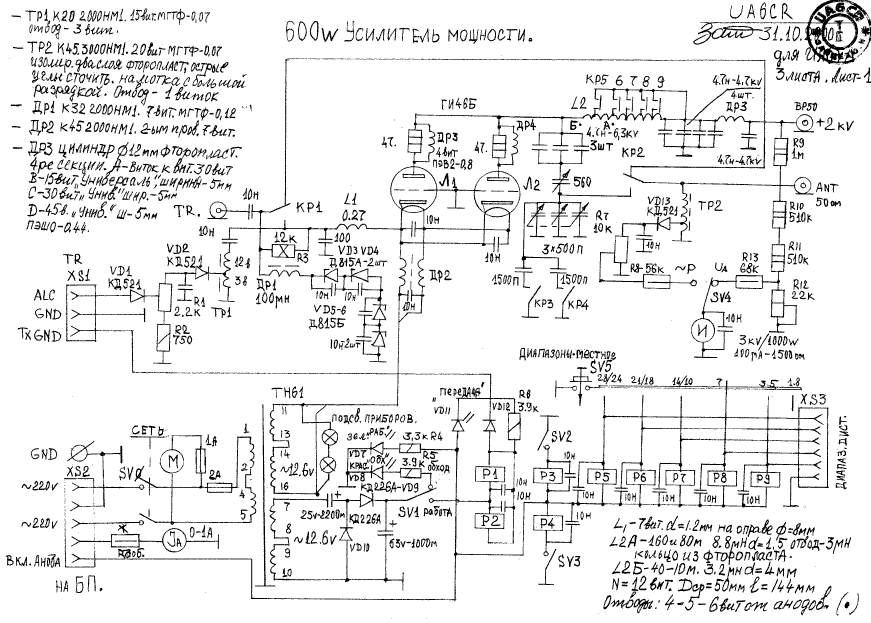 — ТР1 К20 2000НМ1. 15вит МГТФ-0,07
отвод - 3 вит.
— ТР2 К45.3000НМ1. 20вит МГТФ-0,07
изолир. два слоя фторопласт, острые
углы сточить. намотка с большой
разрядкой. Отвод - 1 виток
— ДР1 К32 2000НМ1. 7вит. МГТФ-0,12
— ДР2 К45 2000НМ1. 2ым пров. 7вит.
— ДР3 цилиндр Ф12мм фторопласт.
4ре секции. А-виток к вит. 30вит
В-15вит „Универсаль" ширина-5мм
С-30вит „Унив." шир.-5мм
D-45в. „Унив." ш-5мм
ПЭШО-0,44.
600w Усилитель мощности.
UA6CR
31.10.
для
3 листа. Лист-1
UA6CR
ГИ46Б
КР5 6 7 8 9
L2
4.7н-4.7kV
4шт.
ДР3
ВР50
+2 kV
ДР3
4вит
ПЭВ2-0,8
47.
47.
ДР4
Б.
А.
4.7н-6,3kV
3шт
КР2
4.7н-4.7kV
R9
1м
Л1
Л2
560
ANT
50ом
TR.
10н
КР1
L1
0.27
10н
10н
3×500п
R7
10к
VD13
КД521
10н
ТР2
R10
510к
R11
510к
10н
12к
R3
100
VD3 VD4
Д815А-2шт
ДР2
ДР1
100мн
10н
10н
10н
VD5-6
Д815Б
10н2шт
1500п
1500п
КР3
КР4
R8-56к
~Р
UА
R13
68к
SV4
R12
22к
И
10н
3kV/1000w
100mA-1500ом
TR
XS1
VD1
КД521
VD2
КД521
12в
3в
ТР1
ALC
GND
TX GND
R1
2,2к
R2
750
Диапазоны-местное
SV5
28/24
21/18
14/10
7
3.5
1.8
XS3
Диапаз. дист.
ТН61
11
13
14
16
7
8
9
10
~12.6v
~12.6v
подсв. приборов.
зел. "РАБ"
VD7
3,3к R4
КРАС. "ОБХ"
VD8
3.9к
R5
обход
КД226А-VD9
SV1 работа
25v-2200м
КД226А
VD10
63v-1000м
"передача"
VD11
VD12
R6
3.9к
Р1
10н
10н
Р2
SV2
Р3
10н
Р4
10н
SV3
Р5
Р6
Р7
Р8
Р9
10н
10н
10н
10н
10н
GND
XS2
СЕТЬ
SV
М
1А
2А
1
2
4
5
~220v
~220v
0-1А
Вкл. Анода
на БП.
L1-7вит. d=1.2мм на оправе ф=8мм
L2А-160и80м 8.8мн d=1,5 отвод-3мн
кольцо из фторопласта.
L2Б-40-10м. 3.2мн d=4мм
N=12вит. Dср=50мм l=144мм
Отводы: 4-5-6вит от анодов. (•)